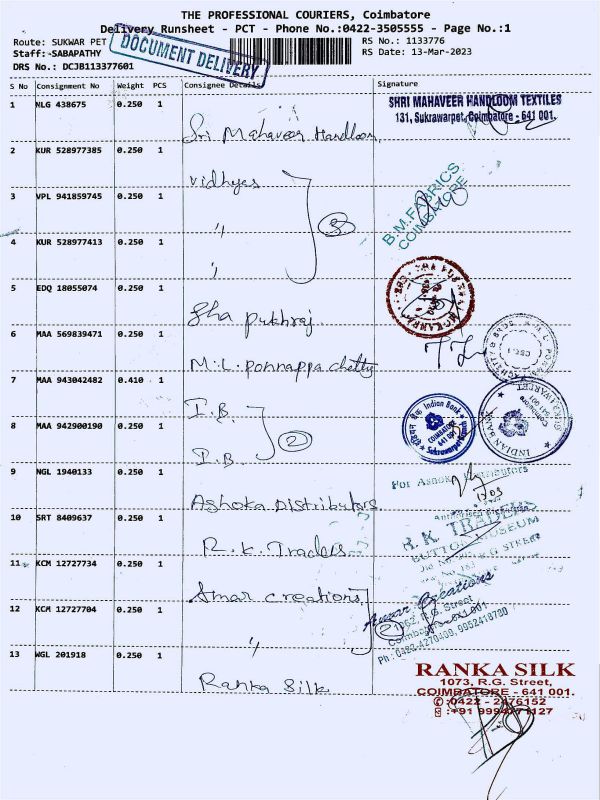 THE PROFESSIONAL COURIERS, Coimbatore
Delivery Runsheet - PCT - Phone No.:0422-3505555 - Page No.:1
Route: SUKWAR PET
DOCUMENT DELIVERY
RS No.: 1133776
Staff:-SABAPATHY
RS Date: 13-Mar-2023
DRS No.: DCJB113377601
S No Consignment No Weight PCS Consignee Details Signature
1 NLG 438675 0.250 1 Sri Mahaveer Handloom,
SHRI MAHAVEER HANDLOOM TEXTILES
131, Sukrawarpet, Coimbatore - 641 001.
2 KUR 528977385 0.250 1 Vidhyes
3 VPL 941859745 0.250 1 "
3
B.M. FABRICS
COIMBATORE
4 KUR 528977413 0.250 1 "
5 EDQ 18055074 0.250 1 Sha pukhraj
6 MAA 569839471 0.250 1 M.L. ponnappa chetty
7 MAA 943042482 0.410 1 I.B.
8 MAA 942900190 0.250 1 I.B.
2
Indian Bank
COIMBATORE
641 001
INDIAN BANK
Coimbatore
641 001
9 NGL 1940133 0.250 1 Ashoka Distributors
For Ashoka Distributors
10 SRT 8409637 0.250 1 R.K. Traders
R.K. TRADERS
BUTTON MUSEUM
11 KCM 12727734 0.250 1 Amar creations
12 KCM 12727704 0.250 1 "
2
Amar Creations
R.G. Street
Coimbatore
Ph : 0422-4270400, 9952410700
13 WGL 201918 0.250 1 Ranka Silk
RANKA SILK
1073, R.G. Street,
COIMBATORE - 641 001.